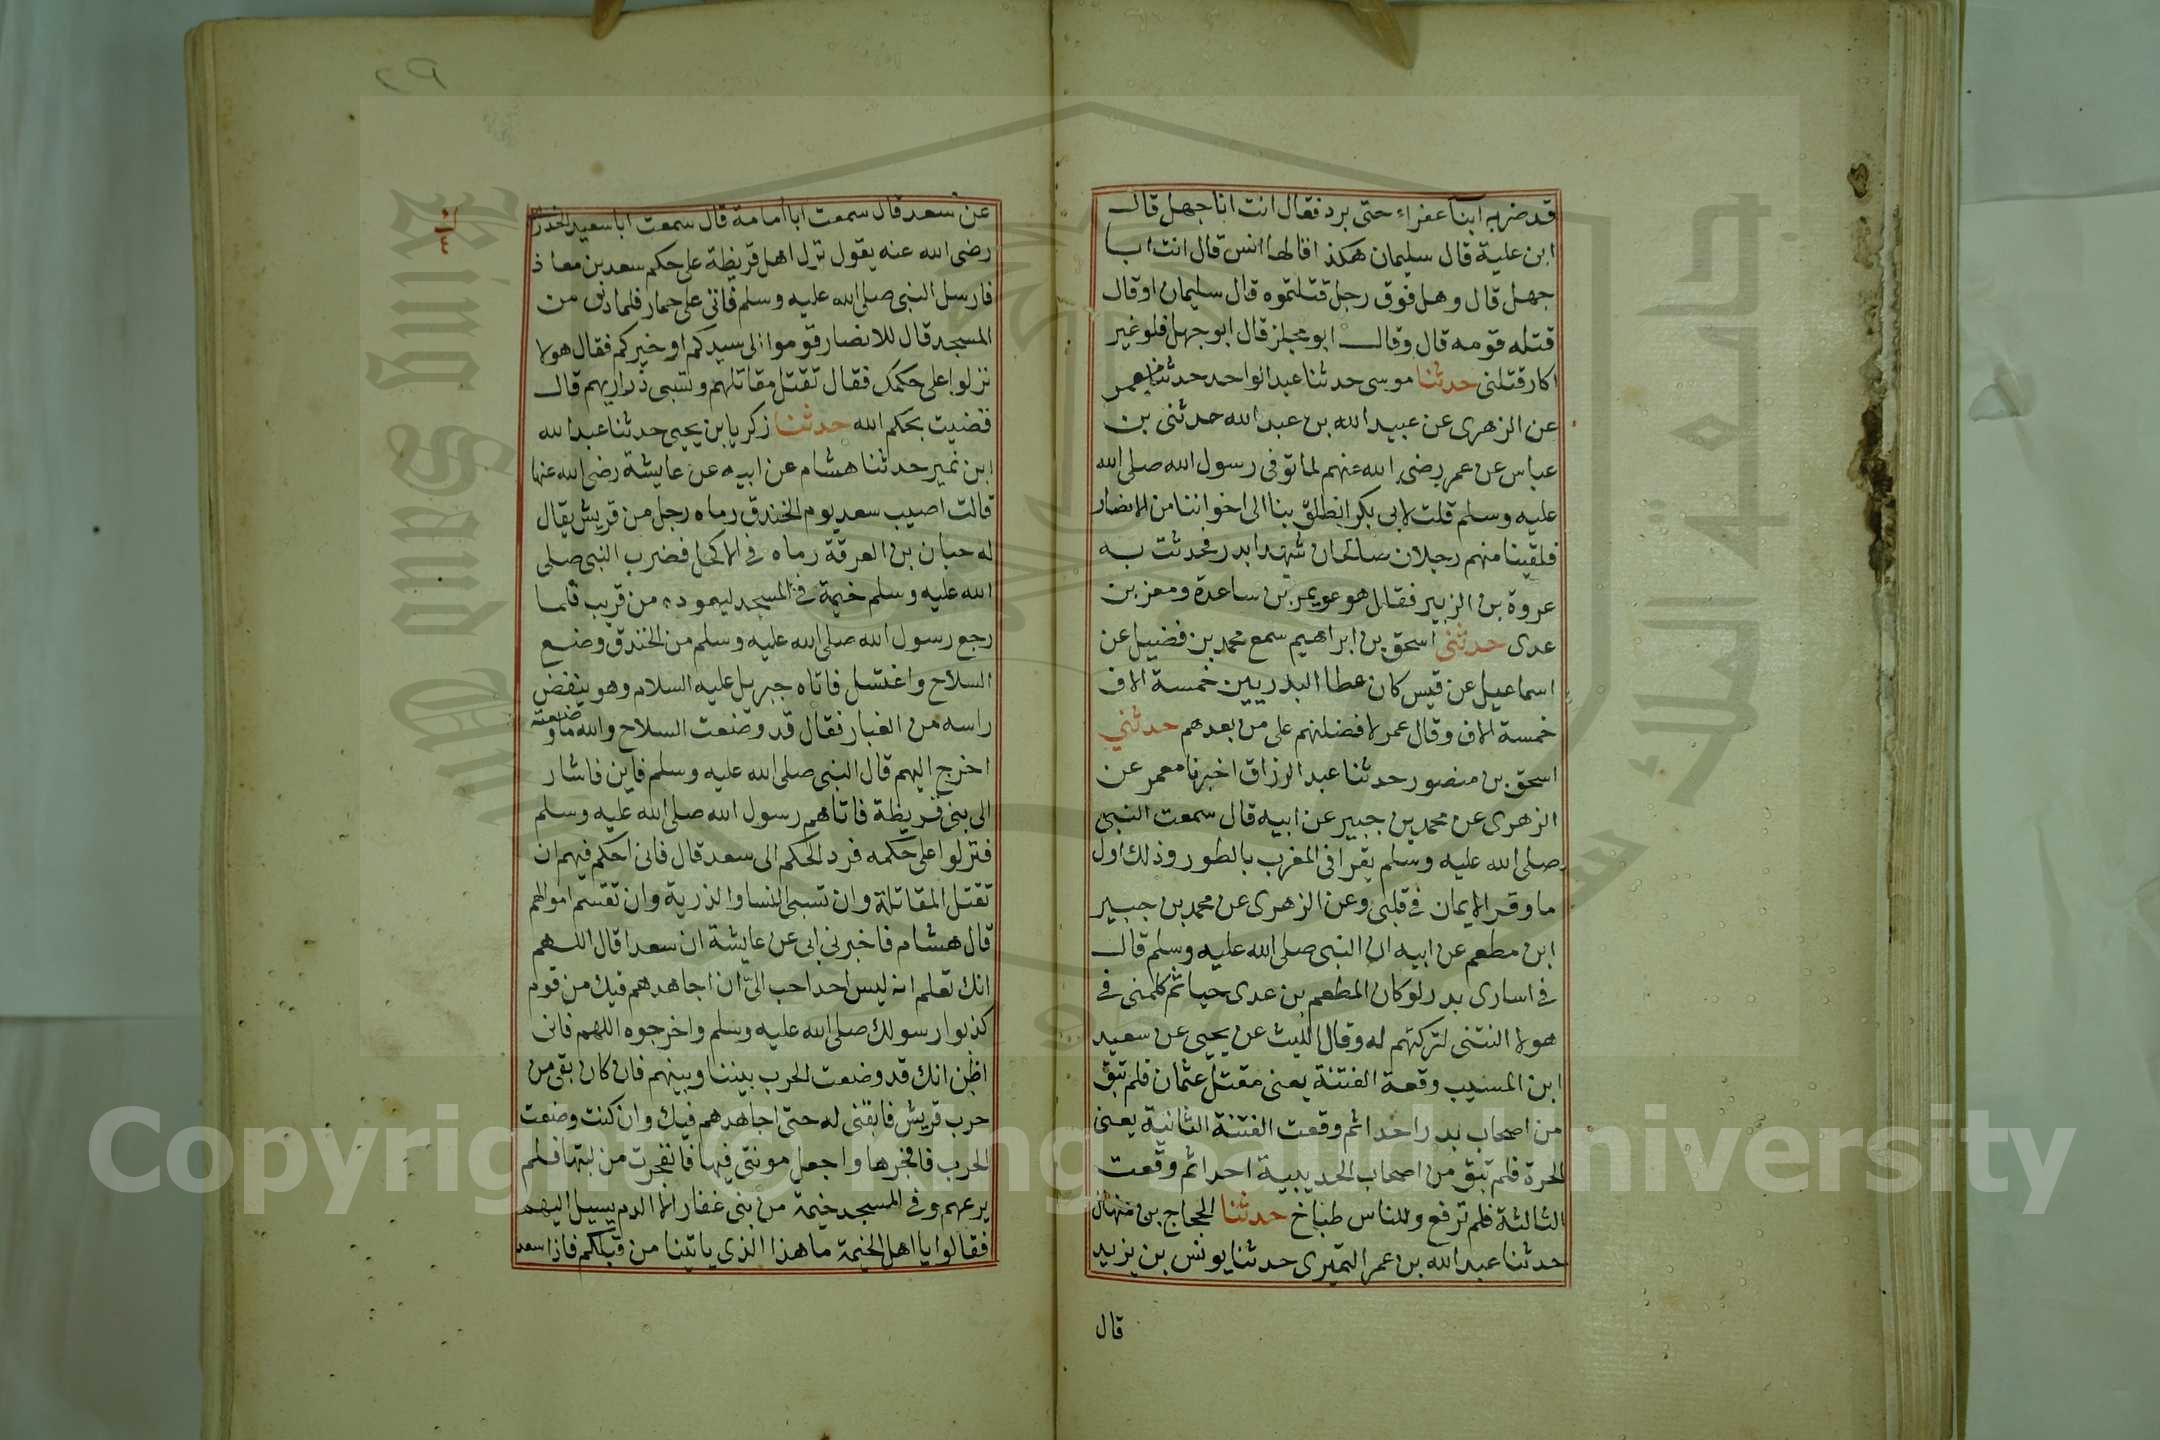 قد ضربه ابنا عفراء حتى برد فقال انت ابا جهل قال
ابن علية قال سليمان هكذا قالها انس قال انت ابا
جهل قال وهل فوق رجل قتلتموه قال سليمان او قال
قتله قومه قال وقال ابو مجلز قال ابو جهل فلو غير
اكار قتلنى حدثنا موسى حدثنا عبد الواحد حدثنا معمر
عن الزهرى عن عبيد الله بن عبد الله حدثنى بن
عباس عن عمر رضى الله عنهم لما توفى رسول الله صلى الله
عليه وسلم قلت لابى بكر انطلق بنا الى اخواننا من الانصار
فلقينا منهم رجلان صالحان شهدا بدر فحدثت به
عروة بن الزبير فقال هو عويمر بن ساعدة ومعن بن
عدى حدثنى اسحق بن ابراهيم سمع محمد بن فضيل عن
اسماعيل عن قيس كان عطا البدريين خمسة الاف
خمسة الاف وقال عمر لافضلنهم على من بعدهم حدثني
اسحق بن منصور حدثنا عبد الرزاق اخبرنا معمر عن
الزهرى عن محمد بن جبير عن ابيه قال سمعت النبى
صلى الله عليه وسلم يقرا فى المغرب بالطور وذلك اول
ما وقر الايمان فى قلبى وعن الزهرى عن محمد بن جبير
ابن مطعم عن ابيه ان النبى صلى الله عليه وسلم قال
فى اسارى بدر لو كان المطعم بن عدى حيا ثم كلمنى فى
هولا النتنى لتركتهم له وقال الليث عن يحيى عن سعيد
ابن المسيب وقعة الفتنة يعنى مقتل عثمان فلم تبق
من اصحاب بدر احدا ثم وقعت الفتنة الثانية يعنى
الحرة فلم تبق من اصحاب الحديبية احدا ثم وقعت
الثالثة فلم ترفع وللناس طباخ حدثنا الحجاج بن منهال
حدثنا عبد الله بن عمر النميرى حدثنا يونس بن يزيد
قال
عن سعد قال سمعت ابا امامة قال سمعت ابا سعيد الخدرى
رضى الله عنه يقول نزل اهل قريظة على حكم سعد بن معاذ
فارسل النبى صلى الله عليه وسلم فاتى على حمار فلما دنى من
المسجد قال للانصار قوموا الى سيدكم او خيركم فقال هولا
نزلوا على حكمك فقال تقتل مقاتلهم وتسبى ذراريهم قال
قضيت بحكم الله حدثنا زكريا بن يحيى حدثنا عبد الله
ابن نمير حدثنا هشام عن ابيه عن عايشة رضى الله عنها
قالت اصيب سعد يوم الخندق رماه رجل من قريش يقال
له حبان بن العرقة رماه فى الاكحل فضرب النبى صلى
الله عليه وسلم خيمة فى المسجد ليعوده من قريب فلما
رجع رسول الله صلى الله عليه وسلم من الخندق وضع
السلاح واغتسل فاتاه جبريل عليه السلام وهو ينفض
راسه من الغبار فقال قد وضعت السلاح والله ما وضعته
اخرج اليهم قال النبى صلى الله عليه وسلم فاين فاشار
الى بنى قريظة فاتاهم رسول الله صلى الله عليه وسلم
فنزلوا على حكمه فرد الحكم الى سعد قال فانى احكم فيهم ان
تقتل المقاتلة وان تسبى النسا والذرية وان تقسم اموالهم
قال هشام فاخبرنى ابى عن عايشة ان سعدا قال اللهم
انك تعلم انه ليس احد احب الى ان اجاهدهم فيك من قوم
كذبوا رسولك صلى الله عليه وسلم واخرجوه اللهم فانى
اظن انك قد وضعت الحرب بيننا وبينهم فان كان بقى من
حرب قريش فابقنى له حتى اجاهدهم فيك وان كنت وضعت
الحرب فافجرها واجعل موتتى فيها فانفجرت من لبتها فلم
يرعهم وفى المسجد خيمة من بنى غفار الا الدم يسيل اليهم
فقالوا يا اهل الخيمة ما هذا الذى ياتينا من قبلكم فاذا سعد
Copyright © King Saud University